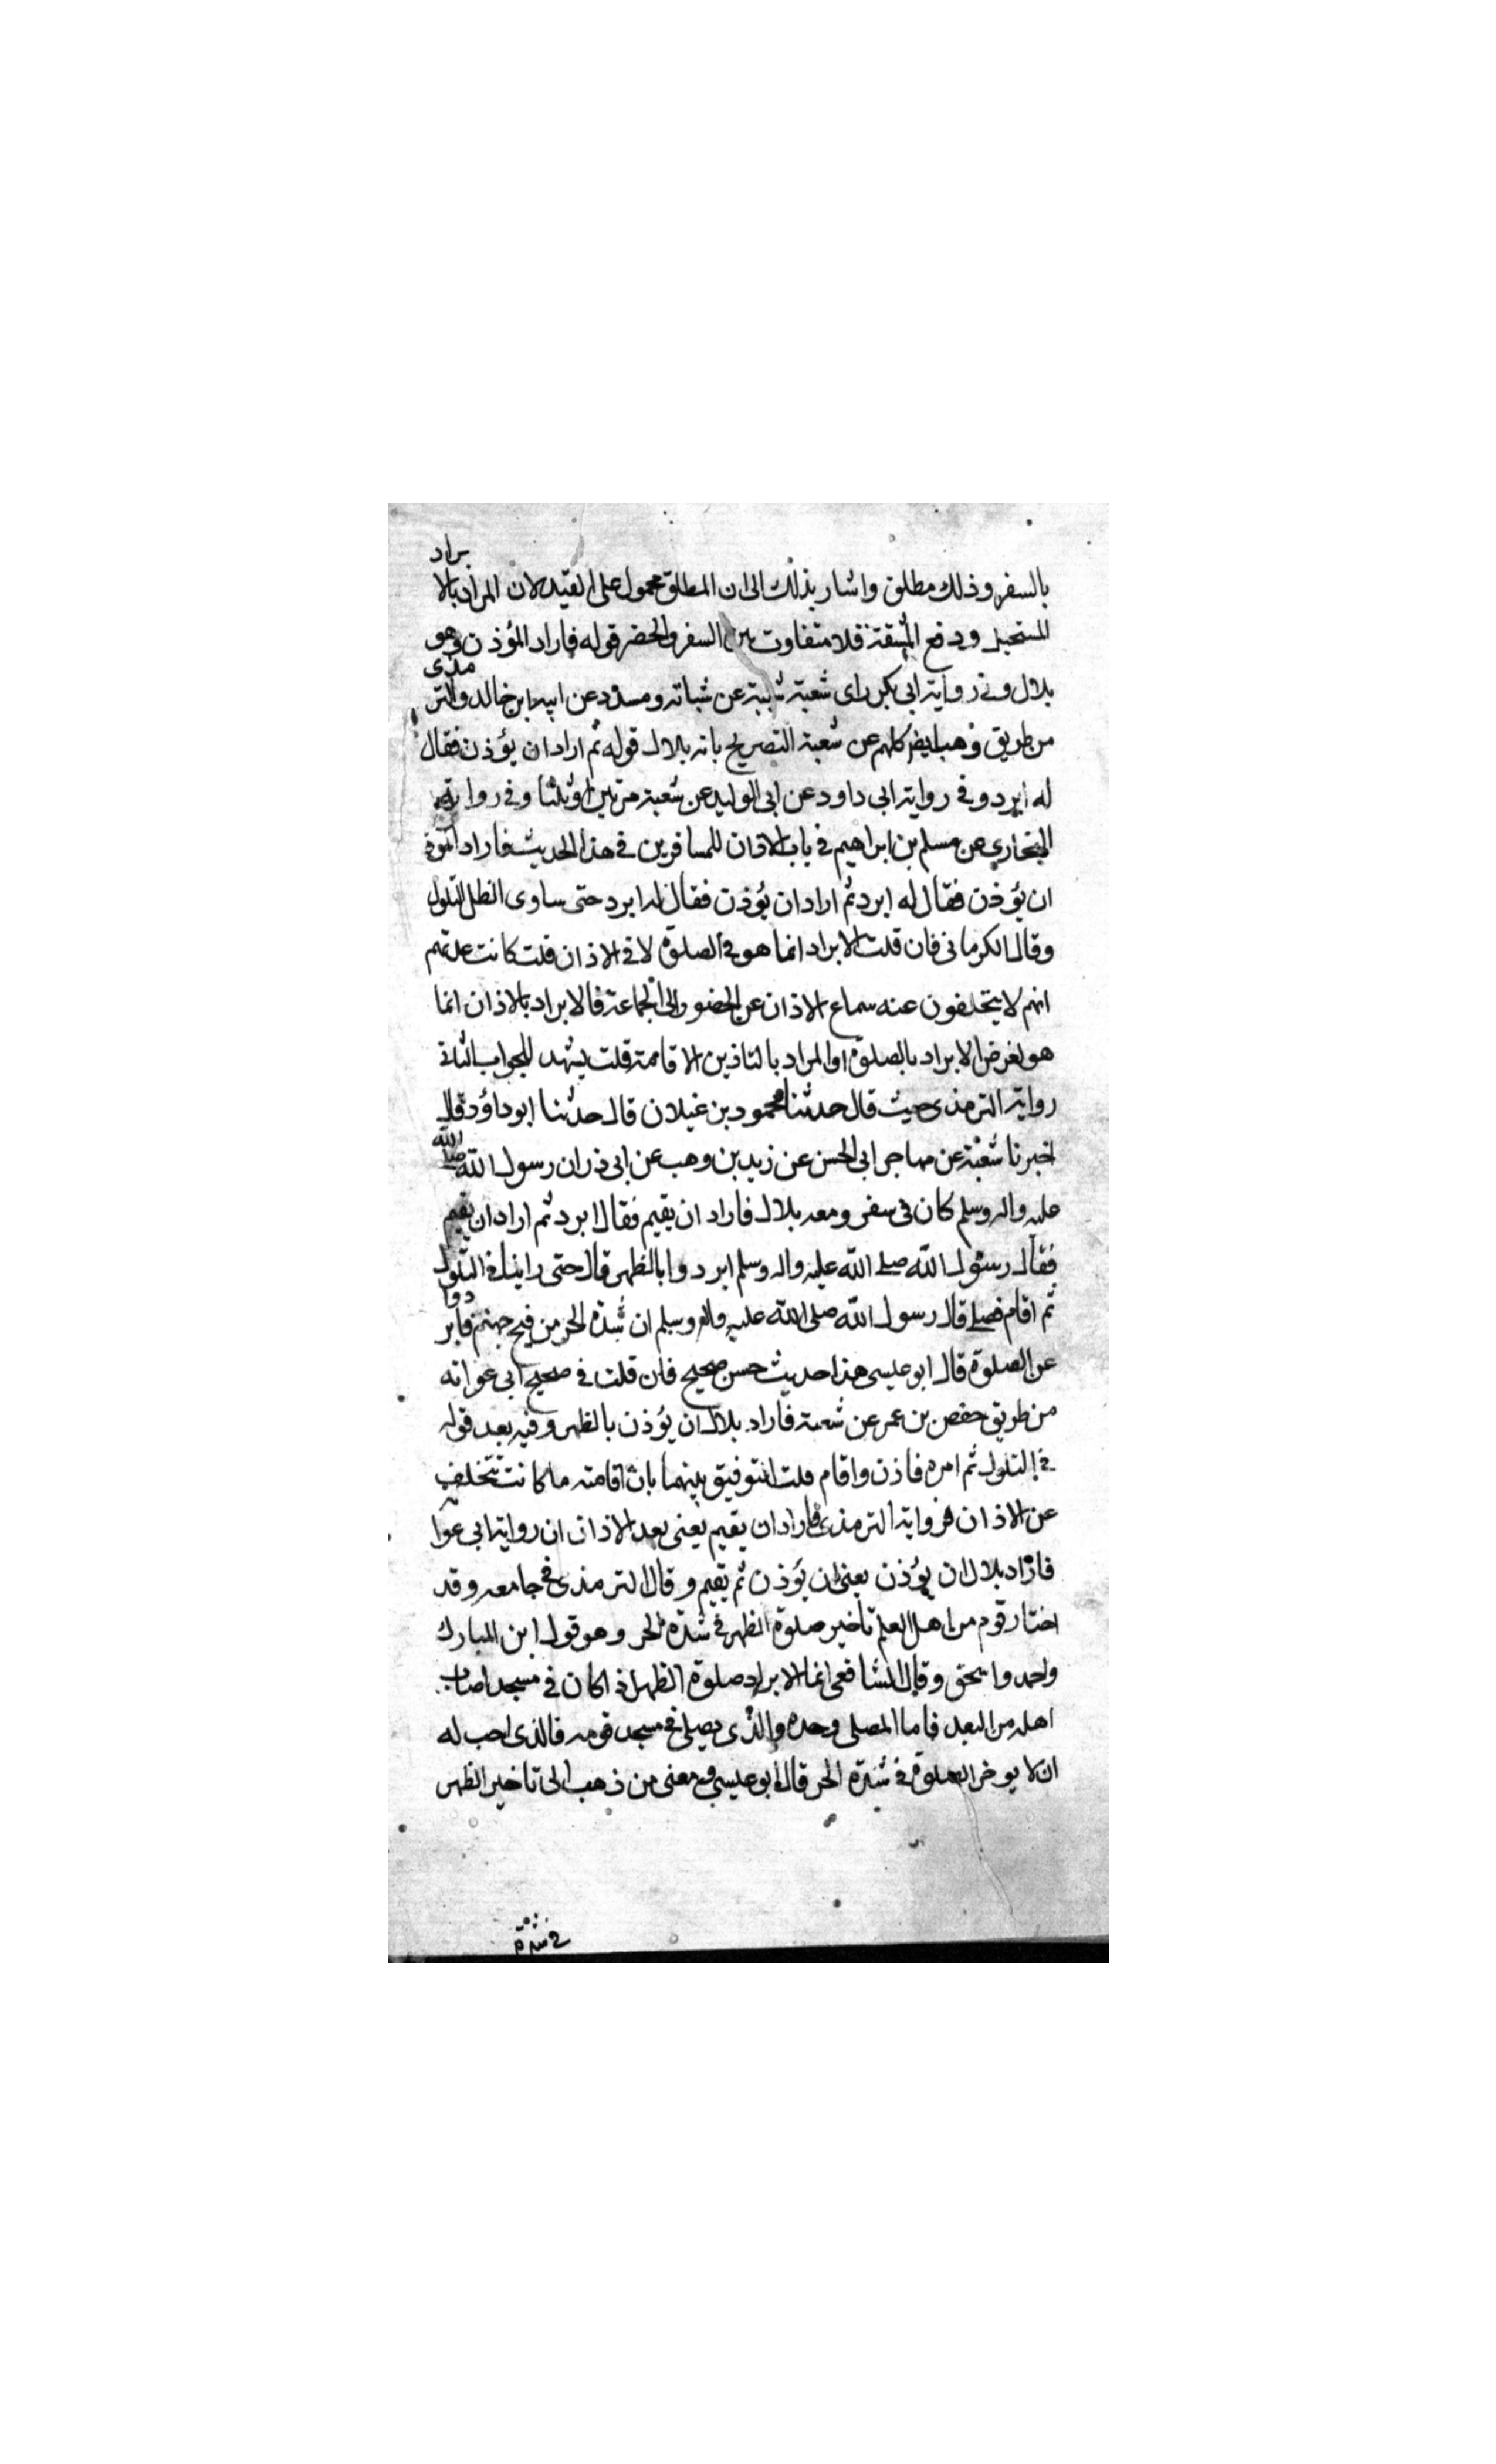 بالسفر وذلك مطلق واشار بذلك الى ان المطلق محمول على المقيد لان المراد بالابراد
التسهيل ودفع المشقة فلا متفاوت بين السفر والحضر قوله فاراد المؤذن وهو
بلال وفي رواية ابي بكر بن اي شعبة شيبة عن شبابة ومسدد عن امية ابن خالد والترمذى
من طريق وهب ايضر كلهم عن شعبة التصريح بانه بلال قوله ثم اراد ان يؤذن فقال
له ابرد وفي رواية ابي داود عن ابي الوليد عن شعبة مرتين او ثلثا وفي رواية
البخاري عن مسلم بن ابراهيم في باب الاذان للمسافرين في هذا الحديث فاراد الموذ
ان يؤذن فقال له ابرد ثم اراد ان يؤذن فقال له ابرد حتى ساوى الظل التلول
وقال الكرماني فان قلت الابراد انما هو في الصلوة لا في الاذان قلت كانت عادتهم
انهم لا يتخلفون عند سماع الاذان عن الحضور الى الجماعة فالابراد بالاذان انما
هو لغرض الابراد بالصلوة او المراد بالتاذين الاقامة قلت يشهد للجواب الثاني
رواية الترمذى حيث قال حدثنا محمود بن غيلان قال حدثنا ابو داؤد قال
اخبرنا شعبة عن مهاجر ابي الحسن عن زيد بن وهب عن ابي ذر ان رسول الله صلى الله
عليه واله وسلم كان في سفر ومعه بلال فاراد ان يقيم فقال ابرد ثم اراد ان يقيم
فقال رسول الله صلى الله عليه واله وسلم ابردوا بالظهر قال حتى راينا في التلول
ثم اقام فصلى قال رسول الله صلى الله عليه واله وسلم ان شدة الحر من فيح جهنم فابردوا
عن الصلوة قال ابو عيسى هذا حديث حسن صحيح فان قلت في صحيح ابي عوانه
من طريق حفص بن عمر عن شعبة فاراد بلال ان يؤذن بالظهر وفيه بعد قوله
في التلول ثم امره فاذن واقام قلت التوفيق بينهما بان اقامته ما كانت تتخلف
عن الاذان فرواية الترمذى فاراد ان يقيم يعني بعد الاذان ان رواية ابي عوانة
فاراد بلال ان يؤذن يعني ان يؤذن ثم يقيم وقال الترمذى في جامعه وقد
اختار قوم من اهل العلم تاخير صلوة الظهر في شدة الحر وهو قول ابن المبارك
واحمد واسحق وقال الشافعي انما الابراد صلوة الظهر اذا كان في مسجد
اهله من البعد فاما المصلى وحده والذى يصلى في مسجد قومه فالذى احب له
ان لا يوخر الصلوة في شدة الحر قال ابو عيسى ومعنى من ذهب الى تاخير الظهر
في شدة